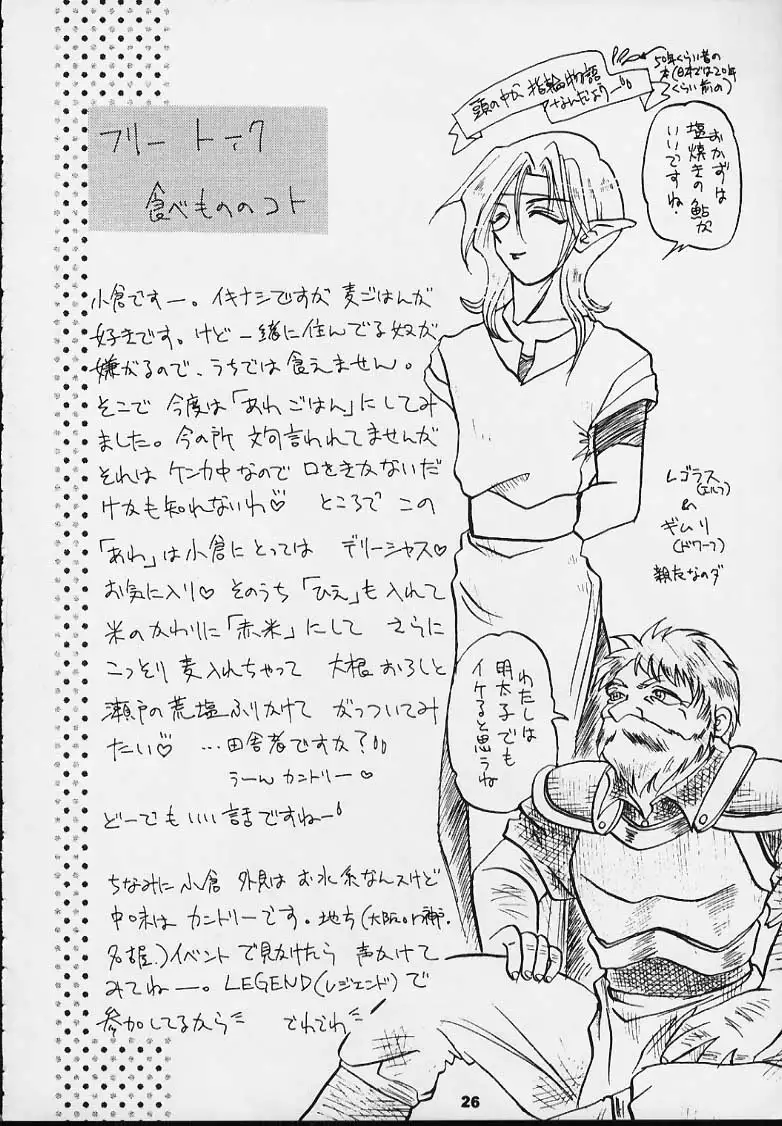 フリートーク
食べもののコト
小倉ですー。イキナシですが 麦ごはんが
好きです。けど 一緒に住んでる奴が
嫌がるので、うちでは食えません。
そこで 今度は「あわごはん」にしてみ
ました。今の所 文句言われてませんが
それは ケンカ中なので 口をきかないだ
けかも知れないわ♡ ところで この
「あわ」は小倉にとっては デリーシャス♡
お気に入り♡ そのうち「ひえ」も入れて
米のかわりに「赤米」にして さらに
こっそり 麦入れちゃって 大根おろしと
瀬戸の荒塩ふりかけて がっついてみ
たい♡ …田舎者ですか?
うーん カントリー♡
どーでもいい話ですねー
ちなみに小倉 外見は お水系なんスけど
中味は カントリーです。地方(大阪or神戸・
名古屋)イベントで見かけたら 声かけて
みてねー。LEGEND(レジェンド)で
参加してるから でわでわ
頭の中が 指輪物語
なんだよー
50年くらい昔の
本(日本では20年
くらい前の)
おかずは
塩焼きの鮎が
いいですね・
レゴラス
(エルフ)
&
ギムリ
(ドワーフ)
親友なのダ
わたしは
明太子でも
イケると思うね
26